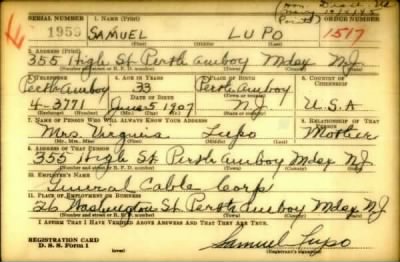 SERIAL NUMBER 1. NAME (Print) ORDER NUMBER
1955 SAMUEL LUPO 1517
(First) (Middle) (Last)
2. ADDRESS (Print)
355 High St Perth Amboy Mdsx N.J.
(Number and street or R. F. D. number) (Town) (County) (State)
3. TELEPHONE 4. AGE IN YEARS 5. PLACE OF BIRTH 6. COUNTRY OF CITIZENSHIP
Perth Amboy 33 Perth Amboy
DATE OF BIRTH (Town or county)
4-3771 June 5 1907 N.J. U.S.A
(Exchange) (Number) (Mo.) (Day) (Yr.) (State or country)
7. NAME OF PERSON WHO WILL ALWAYS KNOW YOUR ADDRESS 8. RELATIONSHIP OF THAT PERSON
Mrs. Virginia Lupo Mother
(Mr., Mrs., Miss) (First) (Middle) (Last)
9. ADDRESS OF THAT PERSON
355 High St. Perth Amboy Mdsx N.J
(Number and street or R. F. D. number) (Town) (County) (State)
10. EMPLOYER'S NAME
General Cable Corp
11. PLACE OF EMPLOYMENT OR BUSINESS
26 Washington St Perth Amboy Mdsx N.J
(Number and street or R. F. D. number) (Town) (County) (State)
I AFFIRM THAT I HAVE VERIFIED ABOVE ANSWERS AND THAT THEY ARE TRUE.
REGISTRATION CARD
D. S. S. Form 1 (over) Samuel Lupo
(Registrant's signature)